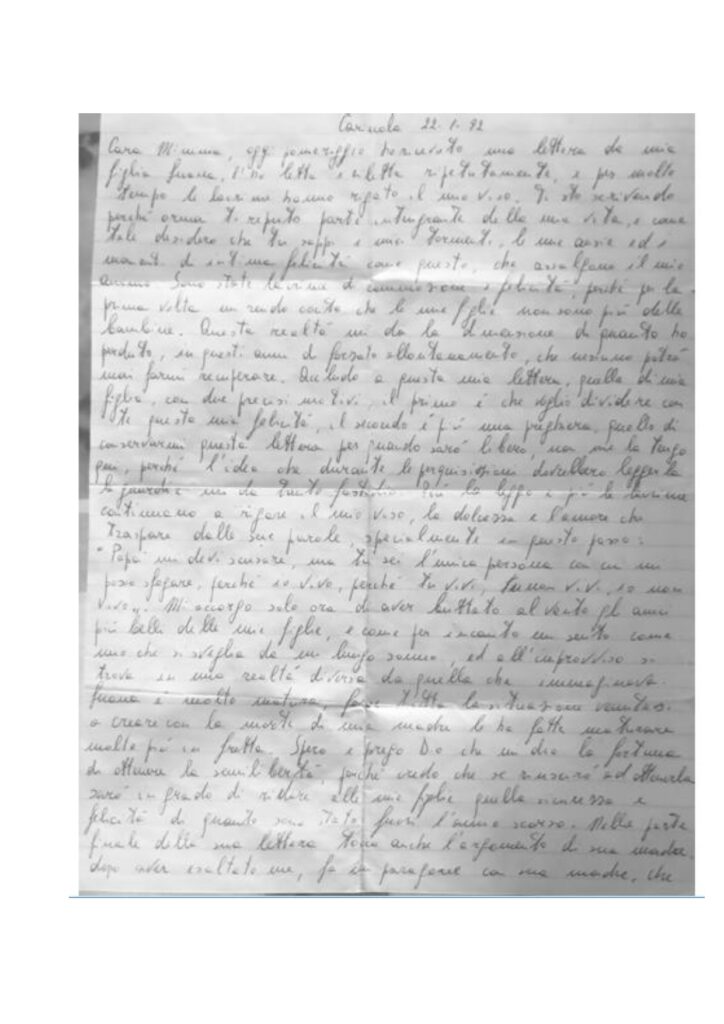 Carinola 22-1-92
Cara Mimma, oggi pomeriggio ho ricevuto una lettera da mia
figlia l'ho letta e riletta ripetutamente, e per molto
tempo le lacrime hanno rigato il mio viso. Ti sto scrivendo
perché ormai ti reputo parte integrante della mia vita, e come
tale desidero che tu sappi i miei tormenti, le mie ansie ed i
momenti di intima felicità come questo, che assalgono il mio
animo. Sono state lacrime di commozione e felicità, perché per la
prima volta mi rendo conto che le mie figlie non sono più delle
bambine. Questa realtà mi da la dimensione di quanto ho
perduto, in questi anni di forzato allontanamento, che nessuno potrà
mai farmi recuperare. a questa mia lettera, quella di mia
figlia, con due precisi motivi, il primo è che voglio dividere con
te questa mia felicità, il secondo è più una preghiera, quello di
conservarmi questa lettera per quando sarò libero, non me la tengo
qui, perché l'idea che durante le perquisizioni dovrebbero leggerla
le guardie mi da tanto fastidio. Più la leggo e più le lacrime
continuano a rigare il mio viso, la dolcezza e l'amore che
traspare dalle sue parole, specialmente in questo passo:
"Papà mi devi scusare, ma tu sei l'unica persona con cui mi
posso sfogare, perché io vivo, perché tu vivi, tu non vivi, io non
vivo". Mi accorgo solo ora di aver buttato al vento gli anni
più belli delle mie figlie, e come per incanto mi sento come
uno che si sveglia da un lungo sonno, ed all'improvviso si
trova in una realtà diversa da quella che immaginava.
è molto matura, forse tutta la situazione venutasi
a creare con la morte di mia madre le ha fatto maturare
molto più in fretta. Spero e prego Dio che mi dia la fortuna
di ottenere la semilibertà, poiché credo che se riuscirò ad ottenerla
sarò in grado di ridare alle mie figlie quella sicurezza e
felicità di quanto sono stato fuori l'anno scorso. Nella parte
finale della sua lettera tocca anche l'argomento di sua madre,
dopo aver esaltato me, fa un paragone con sua madre, che